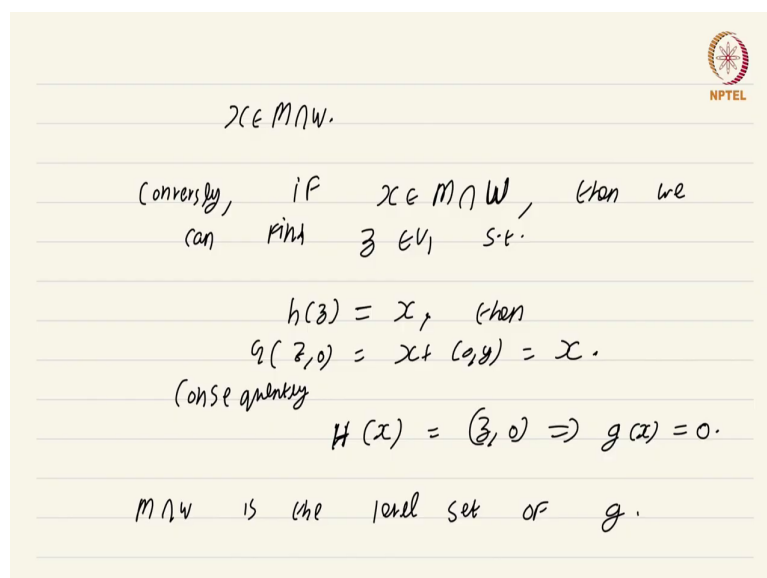 NPTEL
x ∈ M ∩ W.
Conversly, if x ∈ M ∩ W, then we
can find z ∈ V₁ s.t.
h(z) = x, then
G(z,0) = x + (0,y) = x.
Consequently
H(x) = (z,0) ⇒ g(x) = 0.
M ∩ W is the level set of g.